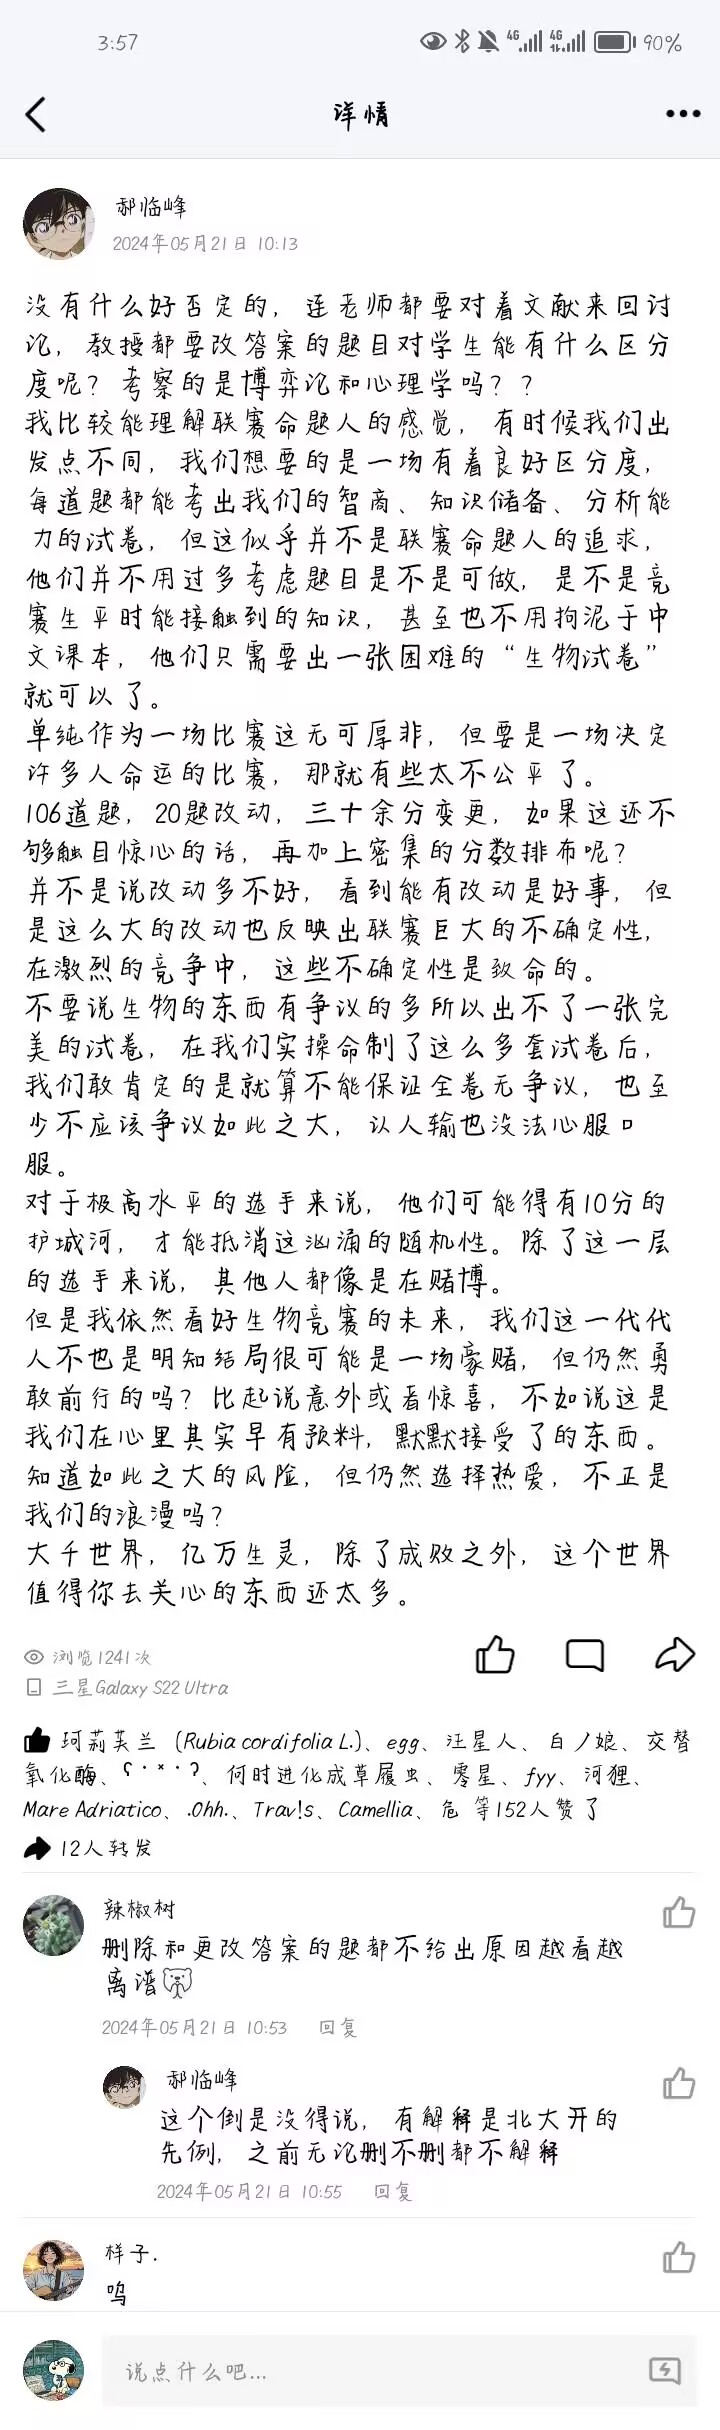 3:57
4G 4G 90%
详情
郝临峰
2024年05月21日 10:13
没有什么好否定的，连老师都要对着文献来回讨
论，教授都要改答案的题目对学生能有什么区分
度呢？考察的是博弈论和心理学吗？？
我比较能理解联赛命题人的感觉，有时候我们出
发点不同，我们想要的是一场有着良好区分度，
每道题都能考出我们的智商、知识储备、分析能
力的试卷，但这似乎并不是联赛命题人的追求，
他们并不用过多考虑题目是不是可做，是不是竞
赛生平时能接触到的知识，甚至也不用拘泥于中
文课本，他们只需要出一张困难的“生物试卷”
就可以了。
单纯作为一场比赛这无可厚非，但要是一场决定
许多人命运的比赛，那就有些太不公平了。
106道题，20题改动，三十余分变更，如果这还不
够触目惊心的话，再加上密集的分数排布呢？
并不是说改动多不好，看到能有改动是好事，但
是这么大的改动也反映出联赛巨大的不确定性，
在激烈的竞争中，这些不确定性是致命的。
不要说生物的东西有争议的多所以出不了一张完
美的试卷，在我们实操命制了这么多套试卷后，
我们敢肯定的是就算不能保证全卷无争议，也至
少不应该争议如此之大，认人输也没法心服口
服。
对于极高水平的选手来说，他们可能得有10分的
护城河，才能抵消这汹涌的随机性。除了这一层
的选手来说，其他人都像是在赌博。
但是我依然看好生物竞赛的未来，我们这一代代
人不也是明知结局很可能是一场豪赌，但仍然勇
敢前行的吗？比起说意外或者惊喜，不如说这是
我们在心里其实早有预料，默默接受了的东西。
知道如此之大的风险，但仍然选择热爱，不正是
我们的浪漫吗？
大千世界，亿万生灵，除了成败之外，这个世界
值得你去关心的东西还太多。
浏览1241次
三星Galaxy S22 Ultra
珂莉芙兰（Rubia cordifolia L.）、egg、汪星人、白ノ娘、交替
氧化酶、ʕ·͡ˑ·ʔ、何时进化成草履虫、零星、fyy、河狸、
Mare Adriatico、.Ohh.、Trav!s、Camellia、危 等152人赞了
12人转发
辣椒树
删除和更改答案的题都不给出原因越看越
离谱
2024年05月21日 10:53 回复
郝临峰
这个倒是没得说，有解释是北大开的
先例，之前无论删不删都不解释
2024年05月21日 10:55 回复
样子.
呜
说点什么吧...